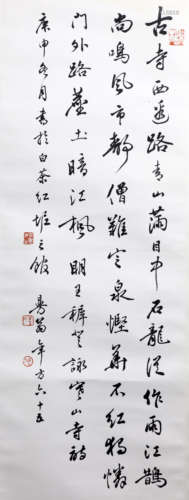 古寺西邊路青山滿目中石龍作雨江鵲
尚鳴風市靜僧難定泉慳葉不紅獨憐
門外路塵土暗江楓明王穉登詠寒山寺詩
庚申月書於白茶紅之館曼翁年方六十五